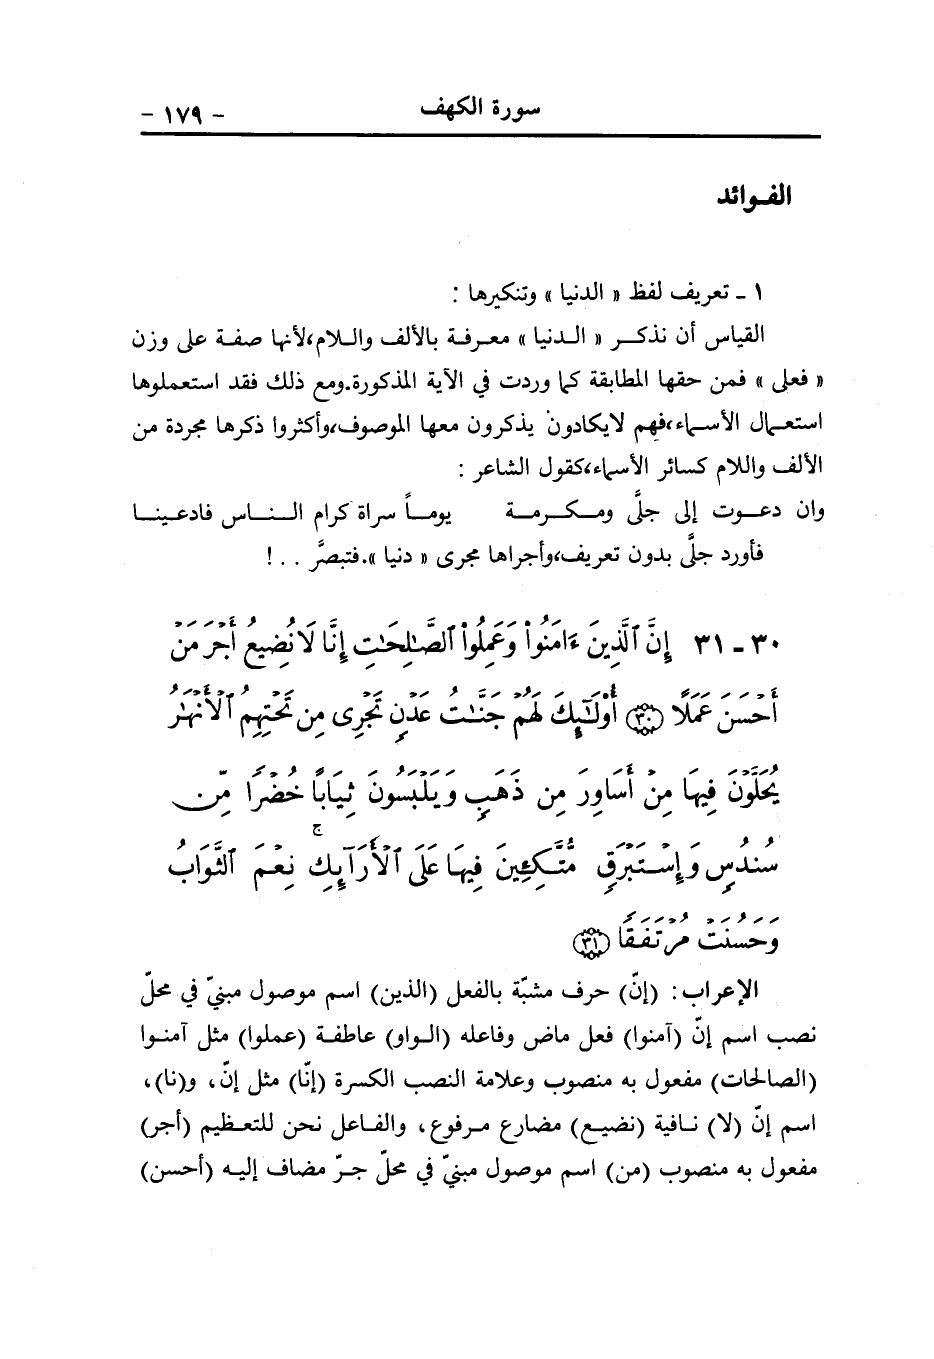 سورة الكهف - ١٧٩ -
الفـوائد
١ ـ تعريف لفظ « الدنيا » وتنكيرها :
القياس أن نذكــر « الـدنيا » معـرفـة بالألف والـلام،لأنها صفـة على وزن
« فعلى » فمن حقها المطابقة كما وردت في الآية المذكورة.ومع ذلك فقد استعملوها
استعـمال الأسـماء،فهم لايكادون يذكرون معها الموصوف،وأكثروا ذكرها مجردة من
الألف واللام كسائر الأسماء،كقول الشاعر :
وان دعــوت إلى جلَّى ومـكـرمـة يومـاً سراة كرام النـاس فادعـينـا
فأورد جلَّى بدون تعريف،وأجراها مجرى « دنيا ».فتبصَّر . . . !
٣٠ ـ ٣١ إِنَّ ٱلَّذِينَ ءَامَنُواْ وَعَمِلُواْ ٱلصَّٰلِحَٰتِ إِنَّا لَا نُضِيعُ أَجْرَ مَنْ
أَحْسَنَ عَمَلًا ﴿٣٠﴾ أُوْلَٰٓئِكَ لَهُمْ جَنَّٰتُ عَدْنٍ تَجْرِى مِن تَحْتِهِمُ ٱلْأَنْهَٰرُ
يُحَلَّوْنَ فِيهَا مِنْ أَسَاوِرَ مِن ذَهَبٍ وَيَلْبَسُونَ ثِيَابًا خُضْرًا مِّن
سُندُسٍ وَإِسْتَبْرَقٍ مُّتَّكِـِٔينَ فِيهَا عَلَى ٱلْأَرَآئِكِ ۚ نِعْمَ ٱلثَّوَابُ
وَحَسُنَتْ مُرْتَفَقًا ﴿٣١﴾
الإعراب : (إنّ) حرف مشبّة بالفعل (الذين) اسم موصول مبنيّ في محلّ
نصب اسم إنّ (آمنوا) فعل ماض وفاعله (الـواو) عاطفـة (عملوا) مثل آمنـوا
(الصالحات) مفعول به منصوب وعلامة النصب الكسرة (إنّا) مثل إنّ، و(نا)،
اسم إنّ (لا) نـافية (نضيـع) مضارع مـرفوع، والفـاعل نحن للتعـظيم (أجر)
مفعول به منصوب (من) اسم موصول مبنيّ في محلّ جـرّ مضاف إليه (أحسن)